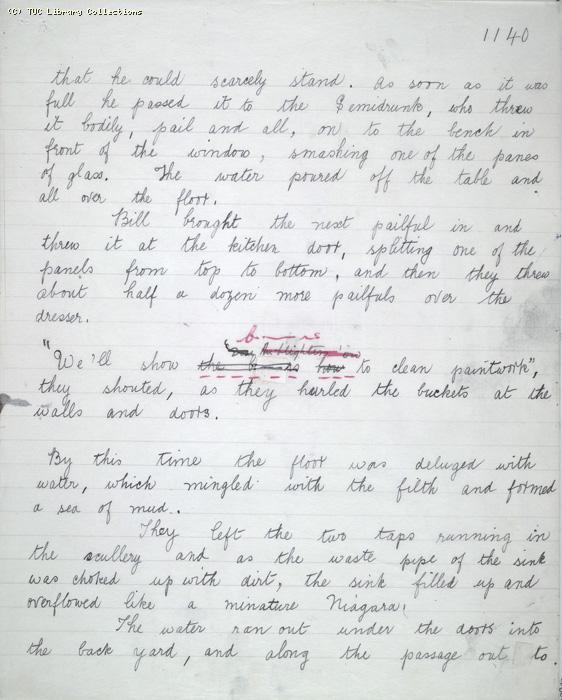 (C) TUC Library Collections
1140
that he could scarcely stand. As soon as it was
full he passed it to the Semidrunk, who threw
it bodily, pail and all, on to the bench in
front of the window, smashing one of the panes
of glass. The water poured off the table and
all over the floor.
Bill brought the next pailful in and
threw it at the kitchen door, splitting one of the
panels from top to bottom, and then they threw
about half a dozen more pailfuls over the
dresser.
b——rs
"We'll show the b s how to clean paintwork",
they shouted, as they hurled the buckets at the
walls and doors.
By this time the floor was deluged with
water, which mingled with the filth and formed
a sea of mud..
They left the two taps running in
the scullery and as the waste pipe of the sink
was choked up with dirt, the sink filled up and
overflowed like a minature Niagara.
The water ran out under the doors into
the back yard, and along the passage out to